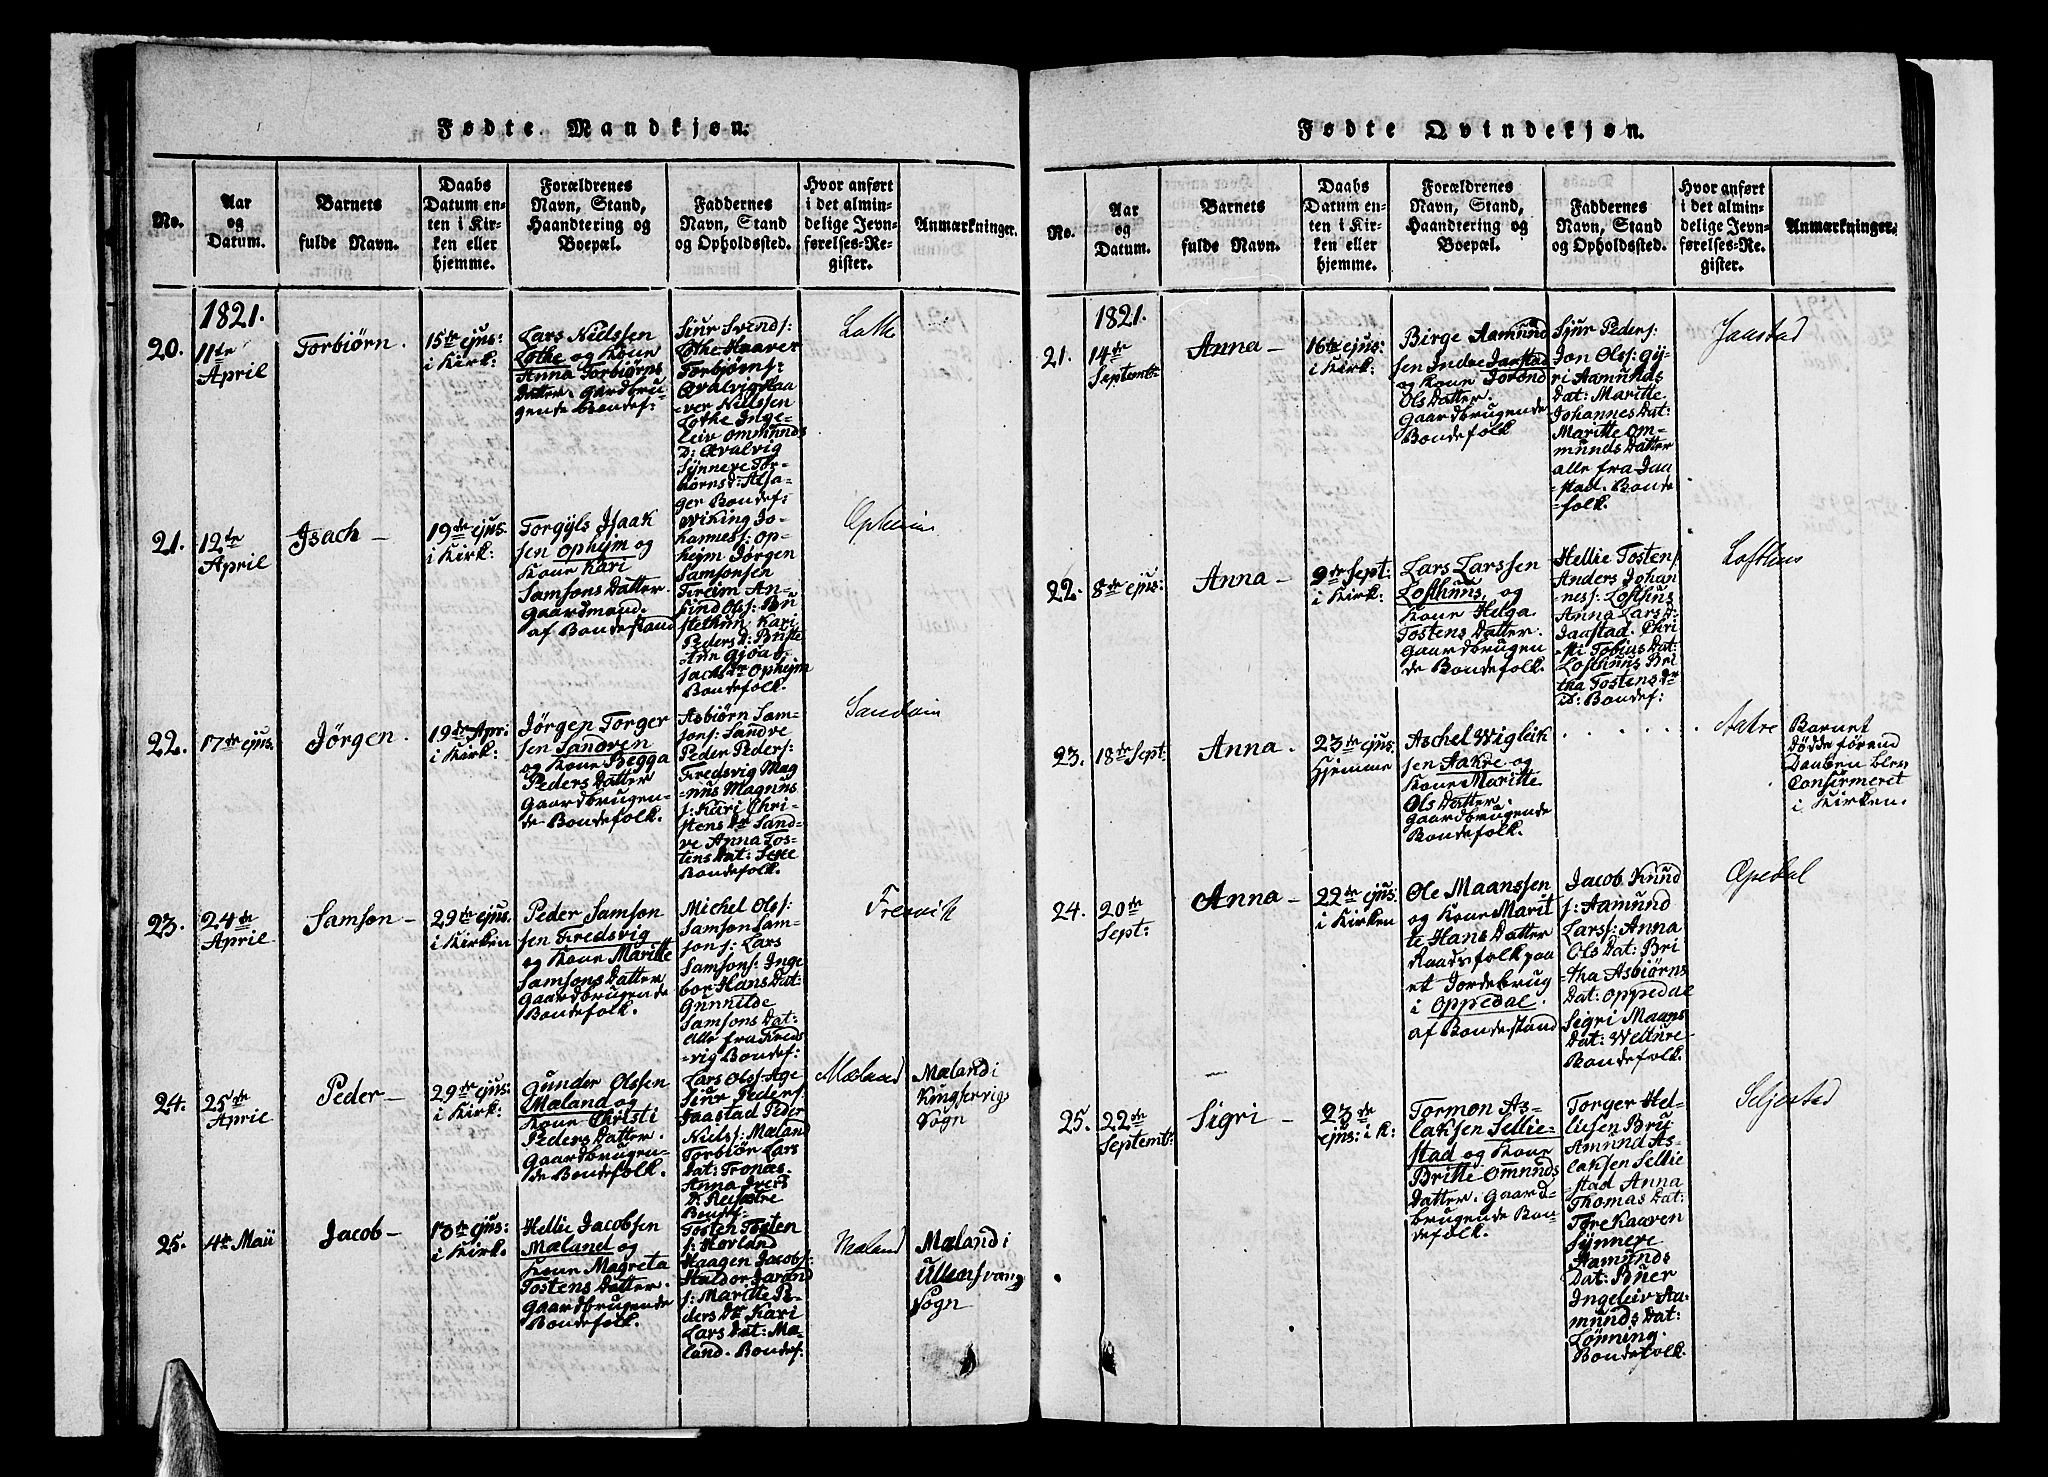 Fødte Mandkjøn.
No.
Aar
og
Datum.
Barnets
fulde Navn.
Daabs
Datum en-
ten i Kir-
ken eller
hjemme.
Forældrenes
Navn, Stand,
Haandtering og
Boepæl.
Faddernes
Navn, Stand
og Opholdssted.
Hvor anført
i det almin-
delige Jevn-
førelses-Re-
gister.
Anmærkninger.
1821.
20.
11te
April
Torbiørn.
15te ejus:
i Kirk:
Lars Nielssen
Lothe og Kone
Anna Torbiørns
Datter. gaardbru-
gende Bondef:
Siur Svends:
Lothe Haaver
Torbjørns:
Qvalvig Haa-
-ver Nielssen
Lothe Inge-
leiv Ommunds
D: Qvalvig
Synneve Tor-
biørns D: Alsa-
ger Bondef:
Lothe
21.
12te
April
Isach -
19de ejus:
i Kirk:
Torgyls Isaak
sen Ophejm og
Kone Kari
Samsons Datter.
Gaardmand.
af Bondestand
Wiking Jo-
hannes: Op-
hejm Jørgen
Samsonsen
Freim An-
find Olss: Bu
stethun Kari
Peders D: Briste
Ane Gjøa J-
sachs Dr Ophejm
Bondefolk.
Opheim
22.
17de ejus.
Jørgen.
19de Apri
i Kirk:
Jørgen Torger
sen Sandven
og Kone Begga
Peders Datter
Gaardbrugen-
de Bondefolk.
Asbiørn Sam-
sons: Sandve
Peder Peders:
Fredsvig Mag-
-nus Magnus
s: Kari Chri-
stens Dr Sand-
ve Anna Tos-
tens Dat: Sexe
Bondefolk.
Sandven
23.
24de
April
Samson -
29de ejus:
i Kirken
Peder Samson
sen Fredsvig
og Kone Maritte
Samsons Datter
Gaardbrugende
Bondefolk.
Michel Olss:
Samson Sam-
sons: Lars
Samsons: Inge
bor Hans Dat:
Gunnilde
Samsons Dat:
Alle fra Freds
-vig Bondef:
Fresvik
24.
25de
April
Peder -
29de ejus:
i Kirk:
Gunder Olssen
Mæland og
Kone Christi
Peders Datter.
Gaardbrugen-
de Bondefolk.
Lars Olss: Age
Siur Peders:
Jaastad Peder
Niels: Mæland
Torbiør Lars
Dat: Tronæs.
Anna Ivers
D: Reisætre
Bondef:
Mæland
Mæland i
Kingservigs
Sogn
25.
4de Maii
Jacob -
13de ejus:
i Kirk.
Hellie Jacobsen
Mæland og
Kone Magreta
Tostens Datter.
Gaardbrugende
Bondefolk.
Tosten Tosten
s: Hovland
Haagen Jacobs:
Haldor Jarand
s: Maritte Pe-
ders Dtr Kari
Lars Dat: Mæ-
land. Bondef:
Mæland
Mæland i
Ullensvang
Sogn
Fødte Qvindekjøn.
No.
Aar
og
Datum.
Barnets
fulde Navn.
Daabs
Datum en-
ten i Kir-
ken eller
hjemme.
Forældrenes
Navn, Stand,
Haandtering og
Boepæl.
Faddernes
Navn, Stand
og Opholdssted.
Hvor anført
i det almin-
delige Jevn-
førelses-Re-
gister.
Anmærkninger.
1821.
21.
14de
Septemt:
Anna -
16de ejus:
i Kirk:
Birge Aamund
sen Indre Jaastad
og Kone Torond
Ols Datter.
Gaardbrugende
Bondefolk
Sjur Peders:
Jon Olss: Gy-
ri Aamunds
Dat: Maritte
Johannes Dat:
Maritte Om-
munds Datter
alle fra Jaa
-stad. Bonde
folk.
Jaastad
22.
8de ejus:
Anna -
9de Sept:
i Kirk:
Lars Larssen
Lofthuus, og
Kone Helga
Tostens Datter.
Gaardbrugen
de Bondefolk.
Hellie Tostens
Anders Johan-
ness: Lofthus
Anna Lars D:
Jaastad. Chri
-sti Tobias Dat:
Lofthuus Bri
tha Tostens
D: Bondef:
Lofthus
23.
18de Sept:
Anna.
23de ejus:
Hjemme
Aschel Wigleik
sen Aakre og
Kone Maritte
Ols Datter.
Gaardbrugende
Bondefolk.
. . . . . . .
Aakre
Barnet
dødde førend
Daaben blev
Confirmeret
i Kirken.
24.
20de
Sept:
Anna -
22de ejus:
i Kirken
Ole Maanssen
og Kone Marit
te Hans Datter
Raadsfolk paa
et Jordebrug
i Oppedal.
af Bondestand
Jacob Knud
s: Aamund
Larss: Anna
Ols Dat: Bri
-tha Asbiørns
Dat: Oppedal
Sigri Maans
Dat: Welure
Bondefolk.
Opedal
25.
22de
Septemt:
Sigri -
23de
ejus: i K:
Tormon As-
laksen Sellie-
stad og Kone
Britte Omunds
Datter. Gaard-
brugende Bon-
defolk.
Torger Hel-
liesen Bru
Amund As-
laksen Sellie
-stad Anna
Thomas Dat:
Tore Kaaren
Synneve
Aamunds
Dat: Buer
Ingeleiv Aa-
munds Dat:
Lønning.
Bondefolk.
Seljestad